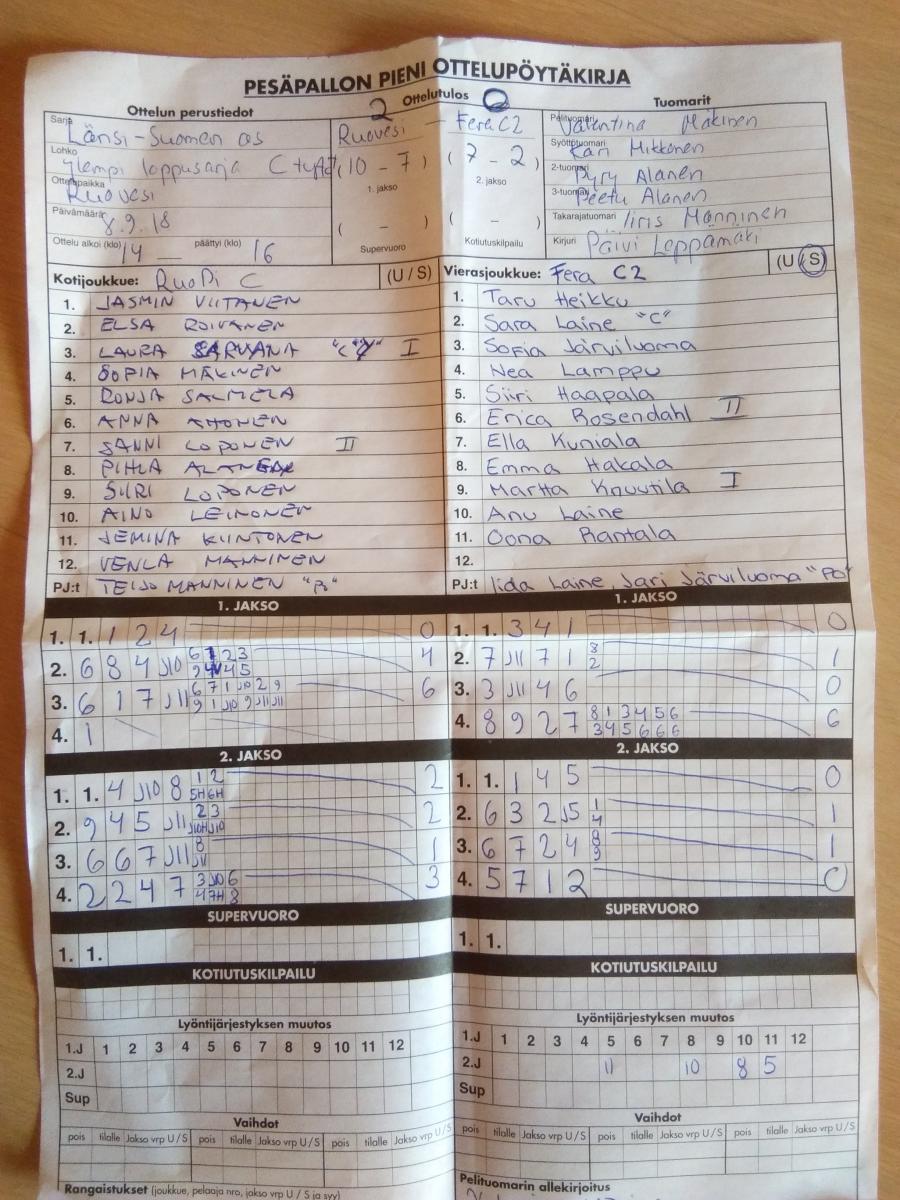 PESÄPALLON PIENI OTTELUPÖYTÄKIRJA
Ottelun perustiedot
2 Ottelutulos 0
Tuomarit
Sarja Länsi-Suomen as
Lohko ylempi loppusarja C tytöt
Ottelupaikka Ruovesi
Päivämäärä 8.9.18
Ottelu alkoi (klo) 14 — päättyi (klo) 16
Ruovesi — Fera C2
(10 - 7) (7 - 2)
1. jakso 2. jakso
( - ) ( - )
Supervuoro Kotiutuskilpailu
Pelituomari Valentina Mäkinen
Syöttötuomari Kari Mikkonen
2-tuomari Pyry Alanen
3-tuomari Peetu Alanen
Takarajatuomari Iiris Manninen
Kirjuri Päivi Leppämäki
Kotijoukkue: RuoPi C (U / S)
1. JASMIN VIITANEN
2. ELSA ROIVANEN
3. LAURA SARVANA "C" I
4. SOFIA MÄKINEN
5. RONJA SALMELA
6. ANNA AHONEN
7. SANNI LOPONEN II
8. PIHLA ALANEN
9. SIIRI LOPONEN
10. AINO LEINONEN
11. JEMINA KIINTONEN
12. VENLA MANNINEN
PJ:t TEIJO MANNINEN "Po"
Vierasjoukkue: Fera C2 (U / S)
1. Taru Heikku
2. Sara Laine "C"
3. Sofia Järviluoma
4. Nea Lamppu
5. Siiri Haapala
6. Erica Rosendahl II
7. Ella Kuniala
8. Emma Hakala
9. Martta Knuutila I
10. Anu Laine
11. Oona Rantala
12.
PJ:t Iida Laine, Jari Järviluoma "Po"
1. JAKSO
1. 1. 1 2 4 0
2. 6 8 4 J10 4
3. 6 1 7 J11 6 7 1 J10 2 9 6
9 1 J10 9 J11 J11
4. 1
2. JAKSO
1. 1. 4 J10 8 1 2 2
5H 6H
2. 9 4 5 J11 2 3 2
J10H J10
3. 6 6 7 J11 8 1
J11
4. 2 2 4 7 3 J10 6 3
4 7H 8
SUPERVUORO
1. 1.
KOTIUTUSKILPAILU
Lyöntijärjestyksen muutos
1.J 1 2 3 4 5 6 7 8 9 10 11 12
2.J
Sup
Vaihdot
pois tilalle Jakso vrp U / S pois tilalle Jakso vrp U / S pois tilalle Jakso vrp U / S
Rangaistukset (joukkue, pelaaja nro, jakso vrp U / S ja syy)
1. JAKSO
1. 1. 3 4 1 0
2. 7 J11 7 1 8 1
2
3. 3 J11 4 6 0
4. 8 9 2 7 8 1 3 4 5 6 6
3 4 5 6 6 6
2. JAKSO
1. 1. 1 4 5 0
2. 6 3 2 J5 1 1
4
3. 6 7 2 4 8 1
9
4. 5 7 1 2 0
SUPERVUORO
1. 1.
KOTIUTUSKILPAILU
Lyöntijärjestyksen muutos
1.J 1 2 3 4 5 6 7 8 9 10 11 12
2.J 11 10 8 5
Sup
Vaihdot
pois tilalle Jakso vrp U / S pois tilalle Jakso vrp U / S pois tilalle Jakso vrp U / S
Pelituomarin allekirjoitus